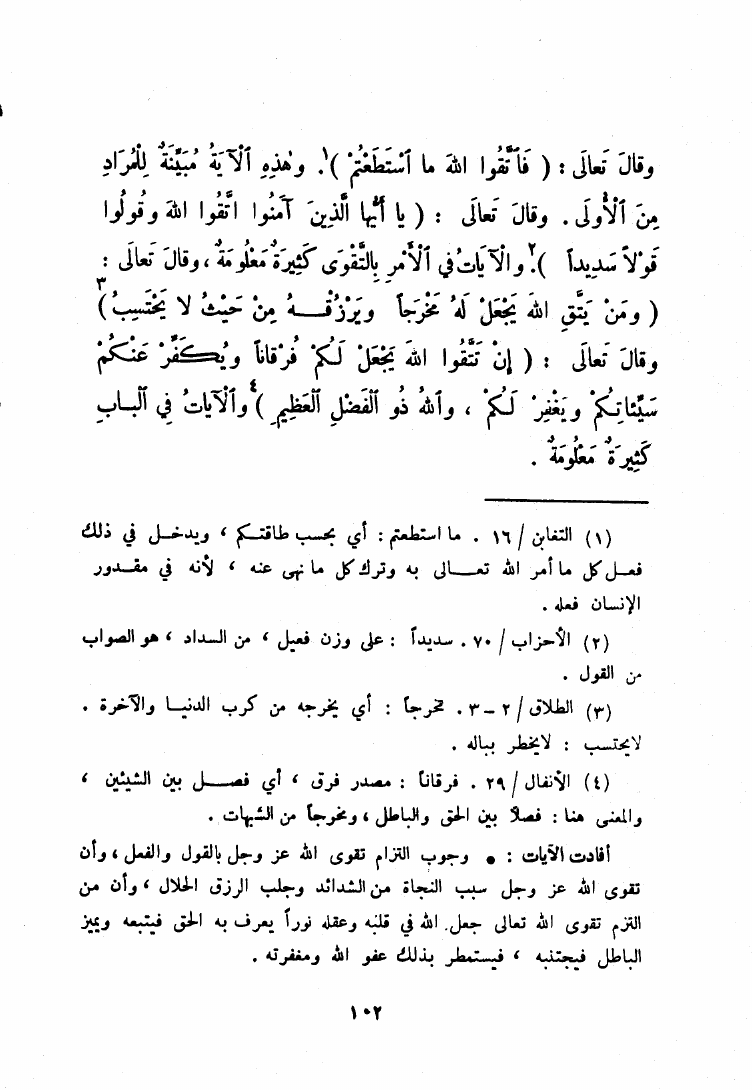 وقالَ تَعالَى : ( فَاتَّقُوا اللهَ ما اسْتَطَعْتُمْ )١. وهٰذِهِ الْآيَةُ مُبَيِّنَةٌ لِلْمُرَادِ
مِنَ الْأُولَى. وقالَ تَعالَى : ( يا أَيُّها الَّذِينَ آمَنُوا اتَّقُوا اللهَ وقُولُوا
قَوْلاً سَدِيداً )٢. والْآيَاتُ في الْأَمْرِ بِالتَّقْوَى كَثِيرَةٌ مَعْلُومَةٌ ، وقالَ تَعالَى :
( ومَنْ يَتَّقِ اللهَ يَجْعَلْ لَهُ مَخْرَجاً ويَرْزُقْهُ مِنْ حَيْثُ لا يَحْتَسِبُ )٣
وقالَ تَعالَى : ( إنْ تَتَّقُوا اللهَ يَجْعَلْ لَكُمْ فُرْقاناً ويُكَفِّرْ عَنْكُمْ
سَيِّئاتِكُمْ ويَغْفِرْ لَكُمْ ، واللهُ ذُو الْفَضْلِ الْعَظِيمِ )٤ والْآيَاتُ فِي الْبابِ
كَثِيرَةٌ مَعْلُومَةٌ .
(١) التغابن / ١٦ . ما استطعتم : أي بحسب طاقتكم ، ويدخل في ذلك
فعل كل ما أمر الله تعالى به وترك كل ما نهى عنه ، لأنه في مقدور
الإنسان فعله .
(٢) الأحزاب / ٧٠ . سديداً : على وزن فعيل ، من السداد ، هو الصواب
من القول .
(٣) الطلاق / ٢ – ٣ . مخرجاً : أي يخرجه من كرب الدنيا والآخرة .
لايحتسب : لايخطر بباله .
(٤) الأنفال / ٢٩ . فرقاناً : مصدر فرق ، أي فصل بين الشيئين ،
والمعنى هنا : فصلاً بين الحق والباطل ، ومخرجاً من الشبهات .
أفادت الآيات : • وجوب التزام تقوى الله عز وجل بالقول والفعل ، وأن
تقوى الله عز وجل سبب النجاة من الشدائد وجلب الرزق الحلال ، وأن من
التزم تقوى الله تعالى جعل الله في قلبه وعقله نوراً يعرف به الحق فيتبعه ويميز
الباطل فيجتنبه ، فيستمطر بذلك عفو الله ومغفرته .
١٠٢